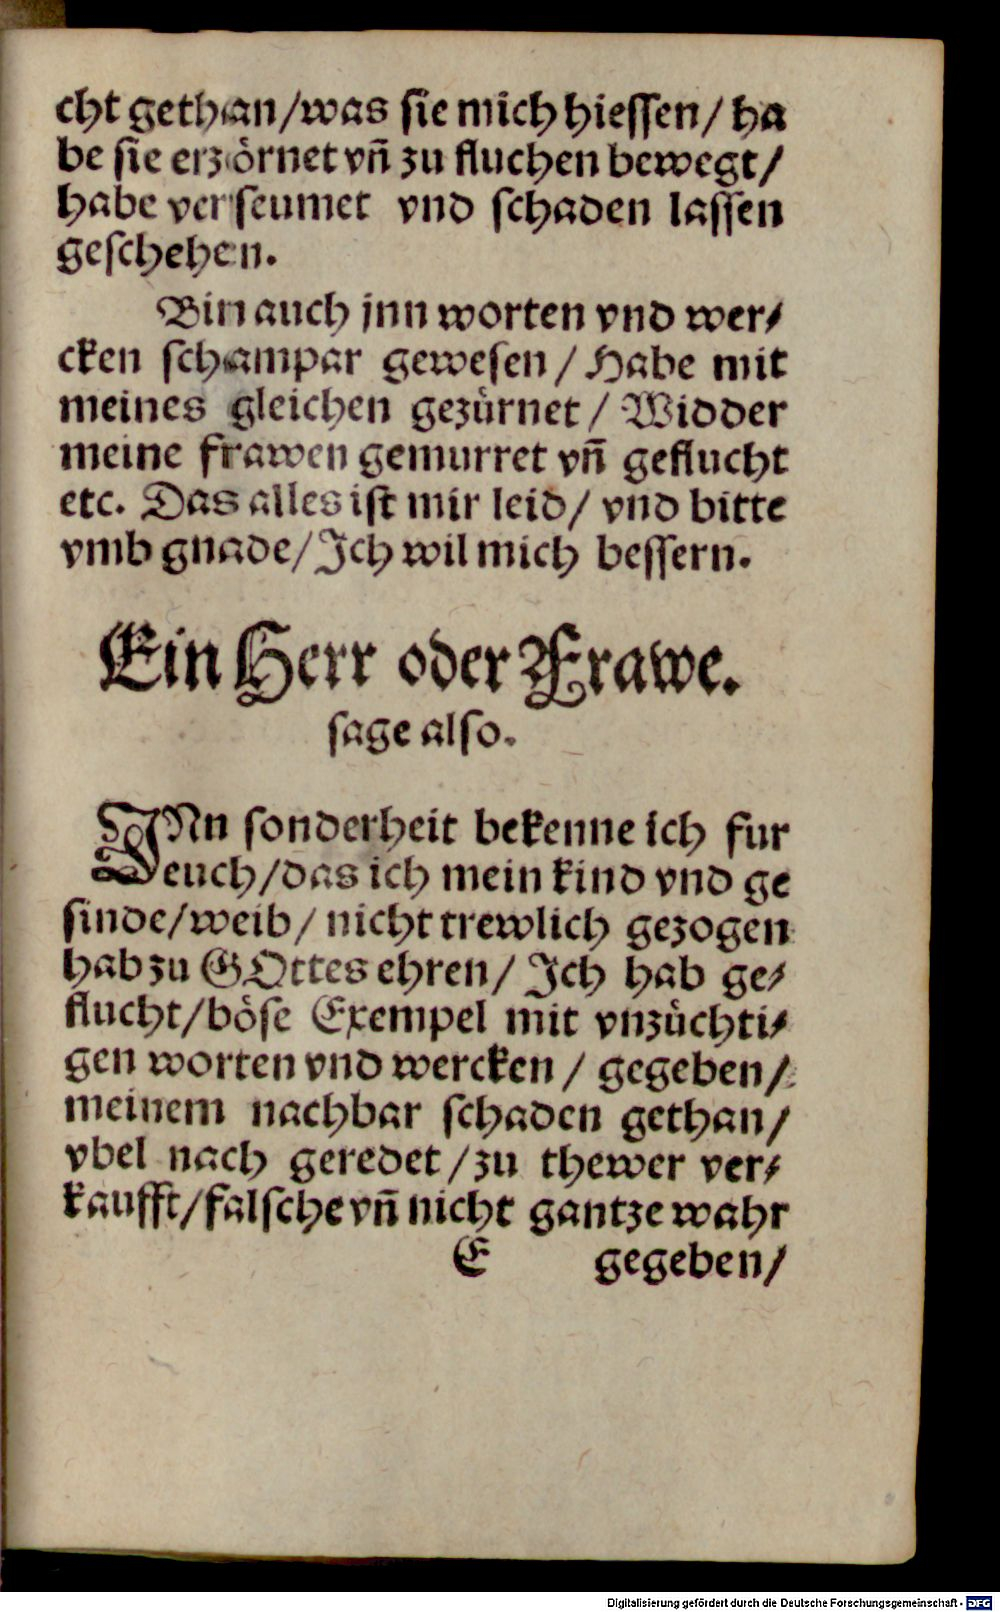 cht gethan/was sie mich hiessen/ha
be sie erzörnet vñ zu fluchen bewegt/
habe verseumet vnd schaden lassen
geschehen.
Bin auch jnn worten vnd wer-
cken schampar gewesen/Habe mit
meines gleichen gezürnet/Widder
meine frawen gemurret vñ geflucht
etc. Das alles ist mir leid/vnd bitte
vmb gnade/Ich wil mich bessern.
Ein Herr oder Frawe.
sage also.
INn sonderheit bekenne ich fur
euch/das ich mein kind vnd ge
sinde/weib/nicht trewlich gezogen
hab zu GOttes ehren/Ich hab ge-
flucht/böse Exempel mit vnzüchti-
gen worten vnd wercken/gegeben/
meinem nachbar schaden gethan/
vbel nach geredet/zu thewer ver-
kaufft/falsche vñ nicht gantze wahr
E gegeben/
Digitalisierung gefördert durch die Deutsche Forschungsgemeinschaft - DFG